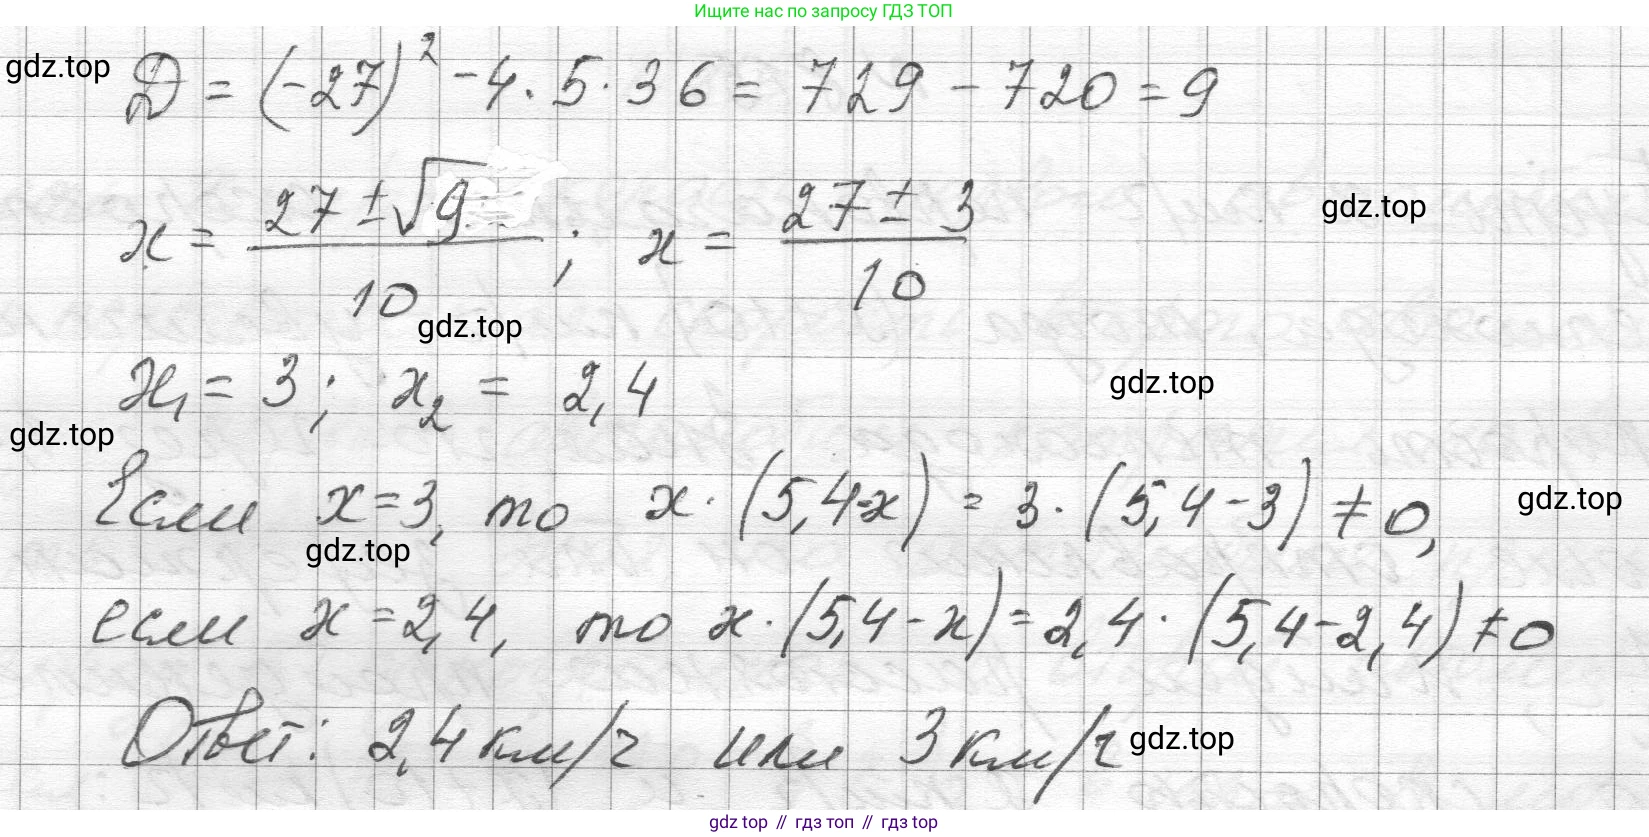 Ищите нас по запросу ГДЗ ТОП
gdz.top
D = (-27)² - 4 · 5 · 36 = 729 - 720 = 9
x = (27 ± √9)/10 ; x = (27 ± 3)/10
gdz.top
gdz.top
x₁ = 3 ; x₂ = 2,4
gdz.top
gdz.top
Если x=3, то x · (5,4-x) = 3 · (5,4-3) ≠ 0,
gdz.top
gdz.top
если x=2,4, то x · (5,4-x) = 2,4 · (5,4-2,4) ≠ 0
Ответ: 2,4 км/ч или 3 км/ч
gdz.top
gdz top // гдз топ // гдз top